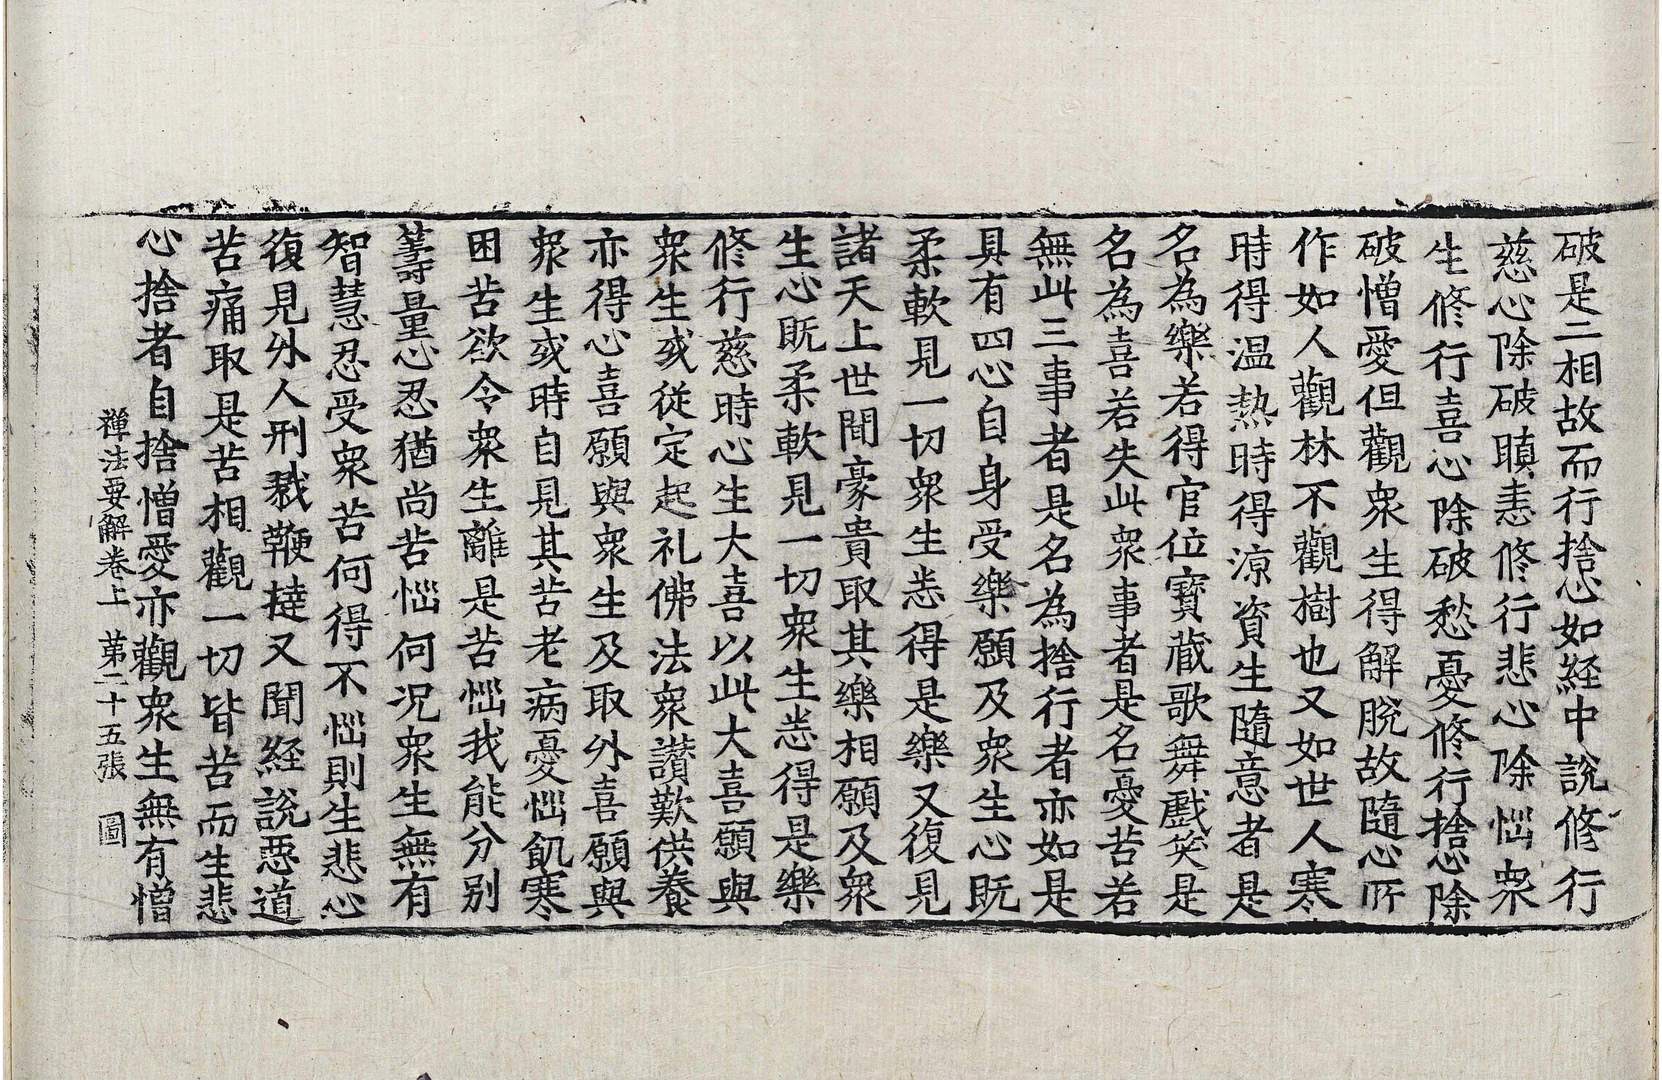 破是二相故而行捨心如経中說修行
慈心除破瞋恚修行悲心除惱衆
生修行喜心除破愁憂修行捨心除
破憎愛但觀衆生得解脫故隨心所
作如人觀林不觀樹也又如世人寒
時得温熱時得涼資生隨意者是
名為樂若得官位寶藏歌舞戲笑是
名為喜若失此衆事者是名憂苦若
無此三事者是名為捨行者亦如是
具有四心自身受樂願及衆生心既
柔軟見一切衆生悉得是樂又復見
諸天上世間豪貴取其樂相願及衆
生心既柔軟見一切衆生悉得是樂
修行慈時心生大喜以此大喜願與
衆生或從定起礼佛法衆讃歎供養
亦得心喜願與衆生及取外喜願與
衆生或時自見其苦老病憂惱飢寒
困苦欲令衆生離是苦惱我能分別
籌量心忍猶尚苦惱何况衆生無有
智慧忍受衆苦何得不惱則生悲心
復見外人刑戮鞭撻又聞経說惡道
苦痛取是苦相觀一切皆苦而生悲
心捨者自捨憎愛亦觀衆生無有憎
禪法要解卷上 苐二十五張 圖